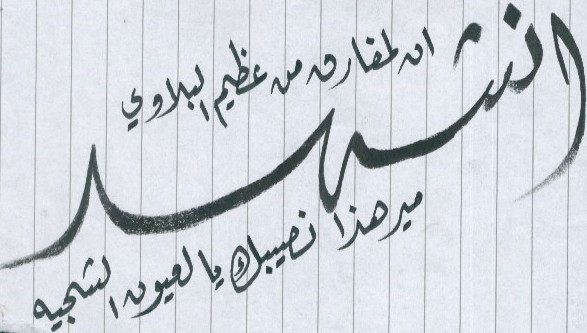 انشهد
ان لمفارق من عظيم البلاوي
مير هذا نصيبك يا لعيون الشجيه